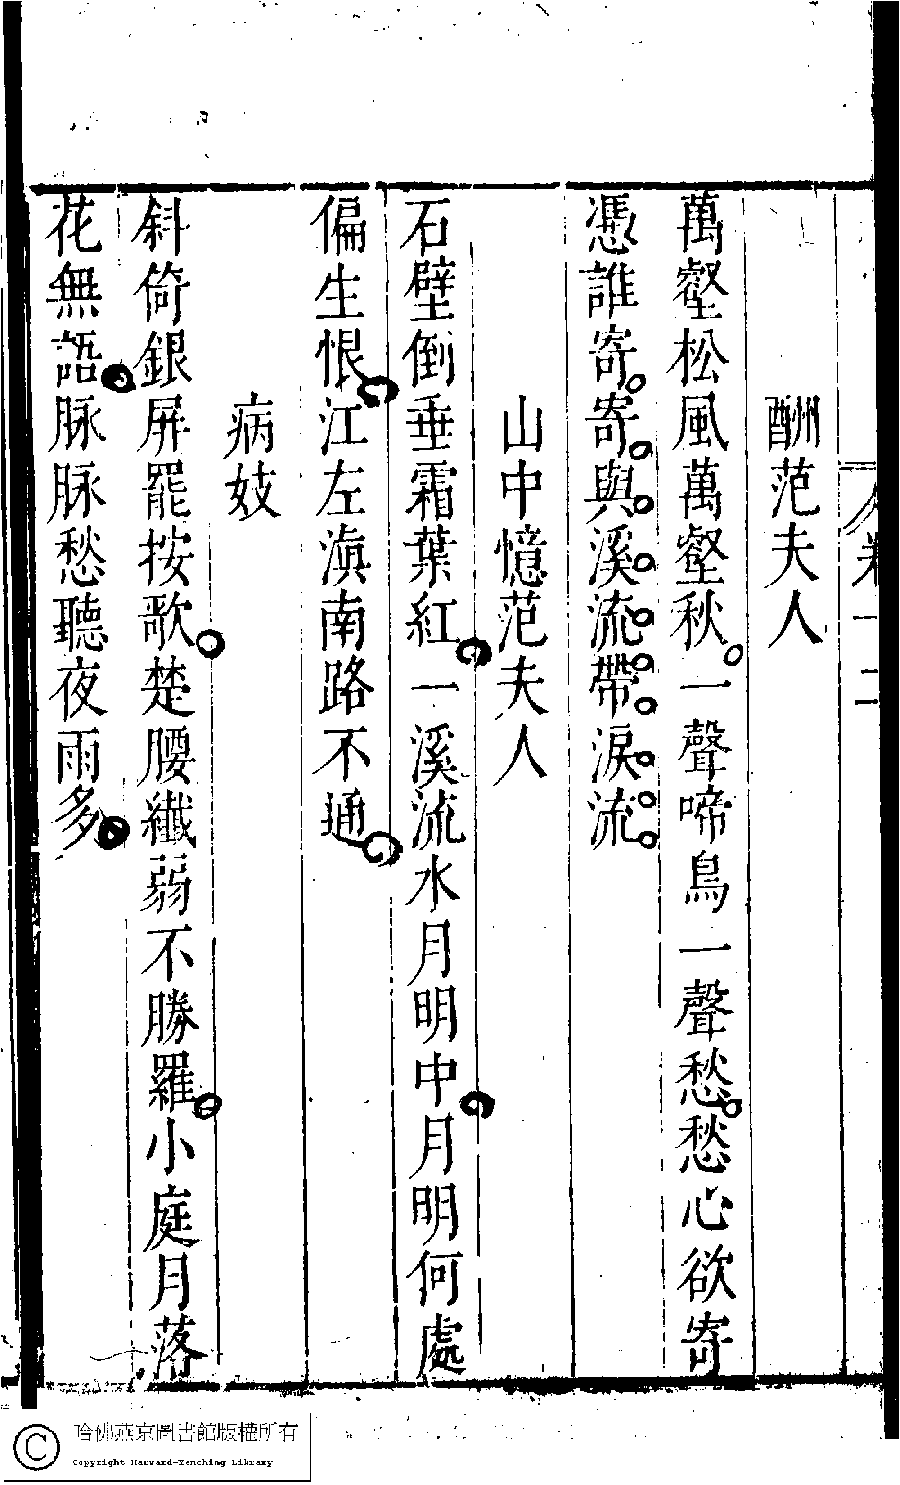 酬范夫人
萬壑松風萬壑秋一聲啼鳥一聲愁愁心欲寄
憑誰寄寄與溪流帶淚流
山中憶范夫人
石壁倒垂霜葉紅一溪流水月明中月明何處
偏生恨江左滇南路不通
病妓
斜倚銀屏罷按歌楚腰纖弱不勝羅小庭月落
花無語脉脉愁聽夜雨多
哈佛燕京圖書館版權所有
Copyright Harvard-Yenching Library